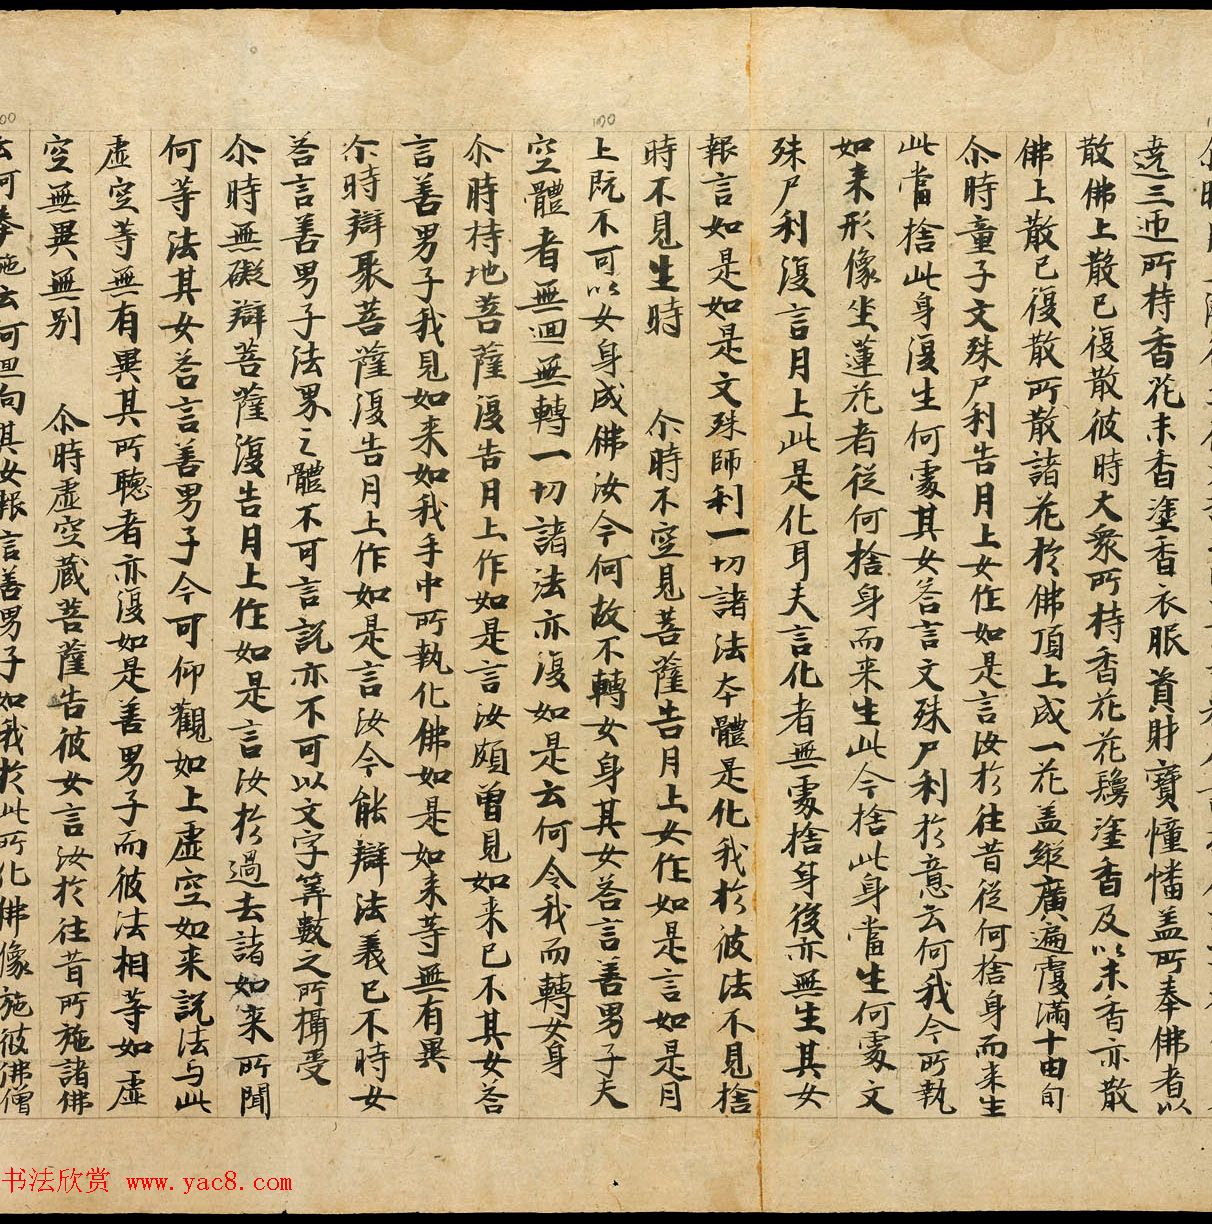 遶三迊所持香花末香塗香衣服資財寶幢幡盖所奉佛者以
散佛上散已復散彼時大衆所持香花花鬘塗香及以末香亦散
佛上散已復散所散諸花於佛頂上成一花盖縱廣遍覆滿十由旬
尒時童子文殊尸利告月上女作如是言汝於往昔從何捨身而来生
此當捨此身復生何處其女荅言文殊尸利於意云何我今所執
如来形像坐蓮花者從何捨身而来生此今捨此身當生何處文
殊尸利復言月上此是化耳夫言化者無處捨身後亦無生其女
報言如是如是文殊師利一切諸法本體是化我於彼法不見捨
時不見生時 尒時不空見菩薩告月上女作如是言如是月
上既不可以女身成佛汝今何故不轉女身其女荅言善男子夫
空體者無迴無轉一切諸法亦復如是云何令我而轉女身
尒時持地菩薩復告月上作如是言汝頗曾見如来已不其女荅
言善男子我見如来如我手中所執化佛如是如来等無有異
尒時辯聚菩薩復告月上作如是言汝今能辯法義已不時女
荅言善男子法界之體不可言説亦不可以文字筭數之所攝受
尒時無礙辯菩薩復告月上作如是言汝於過去諸如来所聞
何等法其女荅言善男子今可仰觀如上虛空如来説法与此
虛空等無有異其所聽者亦復如是善男子而彼法相等如虛
空無異無別 尒時虛空藏菩薩告彼女言汝於往昔所施諸佛
云何奉施云何迴向其女報言善男子如我於此所化佛像施彼佛僧
书法欣赏 www.yac8.com